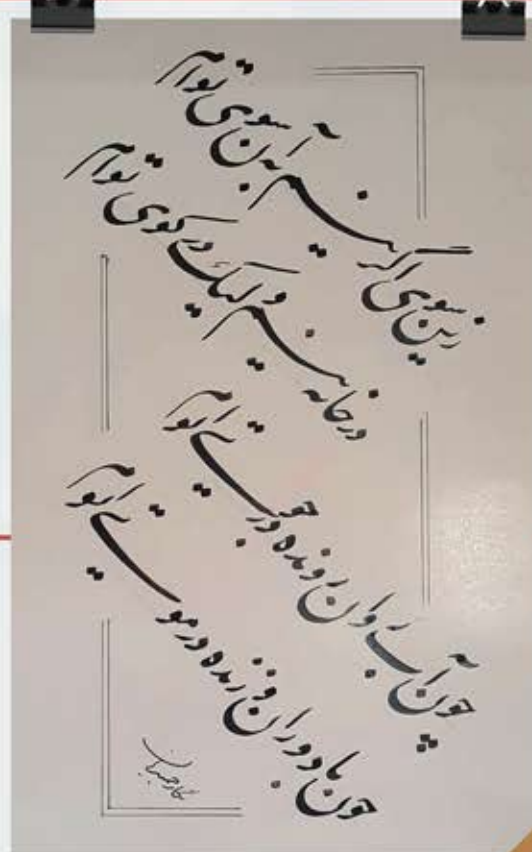 زین سوی اگر نیم به آن سوی توام
در خانه نیم ولیک در کوی توام
چون آب روان رونده در جوی توام
چون باد وزان وزنده در موی توام